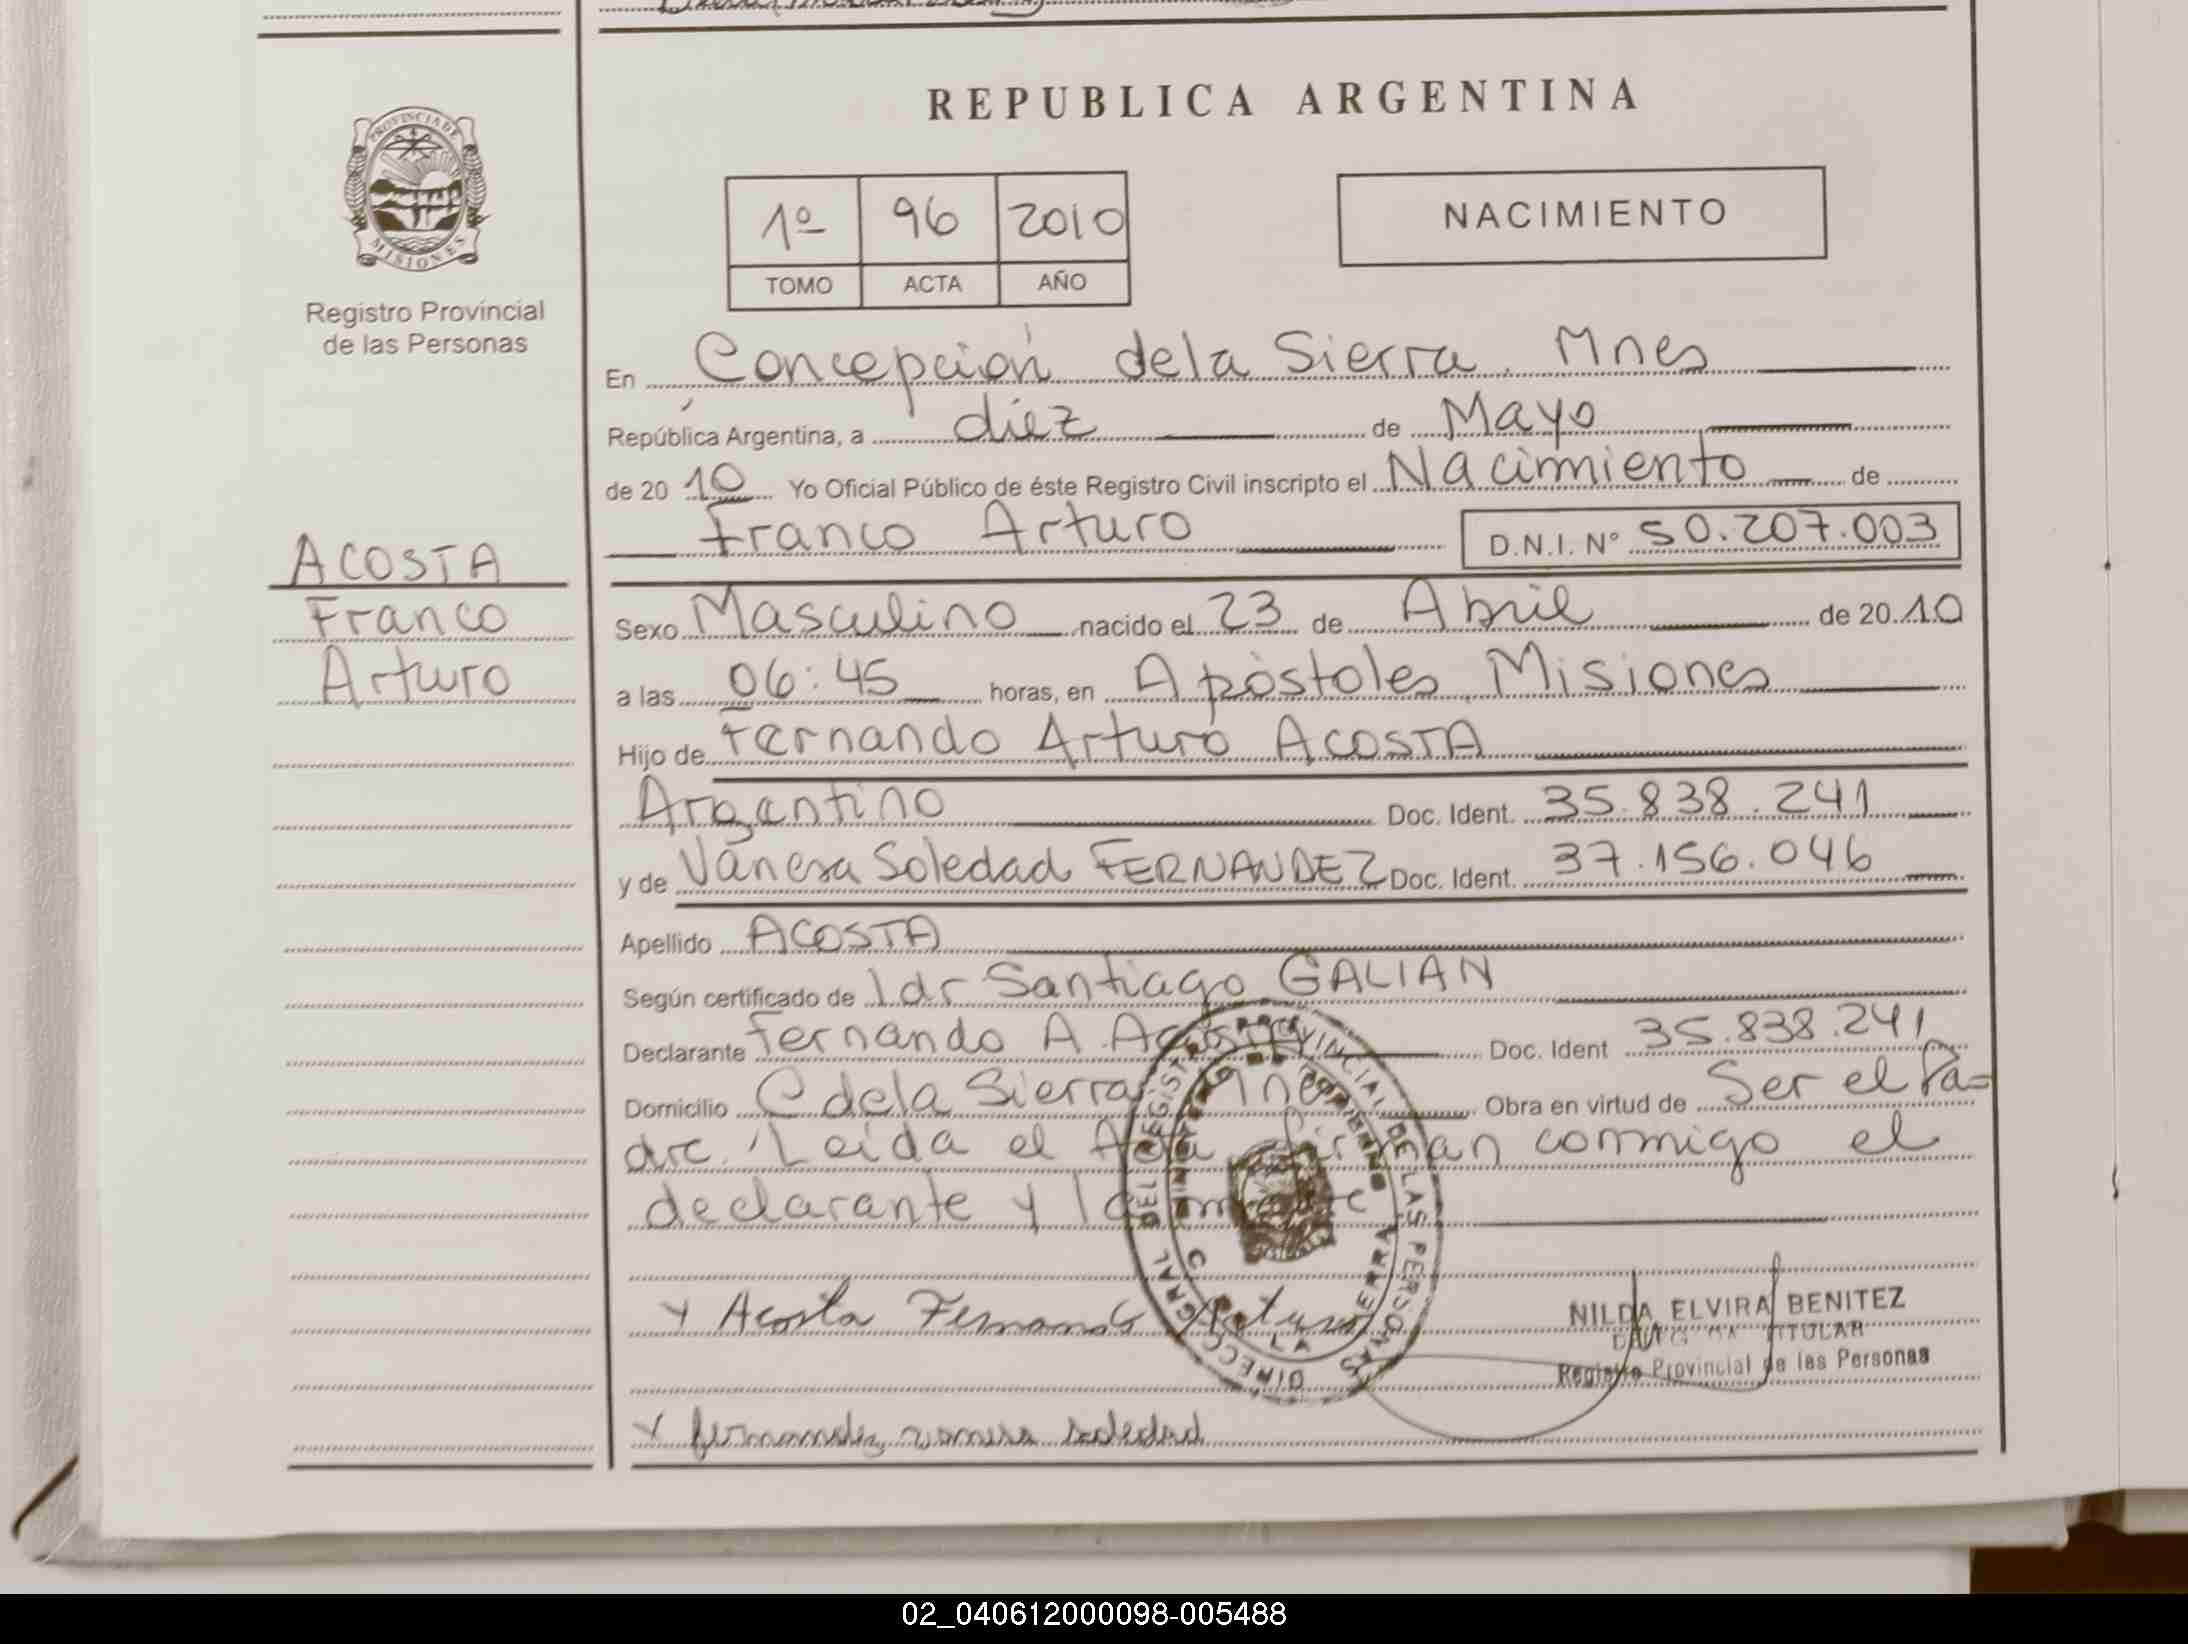 REPUBLICA ARGENTINA
PROVINCIA DE
MISIONES
Registro Provincial
de las Personas
1º 96 2010
TOMO ACTA AÑO
NACIMIENTO
En Concepción de la Sierra. Mnes
República Argentina, a diez de Mayo
de 2010 Yo Oficial Público de éste Registro Civil inscripto el Nacimiento de
Franco Arturo D.N.I. Nº 50.207.003
ACOSTA
Franco
Arturo
Sexo Masculino nacido el 23 de Abril de 2010
a las 06:45 horas, en Apóstoles Misiones
Hijo de Fernando Arturo ACOSTA
Argentino Doc. Ident. 35.838.241
y de Vanesa Soledad FERNANDEZ Doc. Ident. 37.156.046
Apellido ACOSTA
Según certificado de 1 dr Santiago GALIAN
Declarante Fernando A. Acosta Doc. Ident 35.838.241
Domicilio C de la Sierra Mnes Obra en virtud de Ser el Pa=
dre. Leida el Acta firman conmigo el
declarante y la madre
DIRECC. GRAL. DEL REGISTRO PROVINCIAL DE LAS PERSONAS
x Acosta Fernando Arturo
NILDA ELVIRA BENITEZ
TITULAR
Registro Provincial de las Personas
x fernandez vanesa soledad
02_040612000098-005488